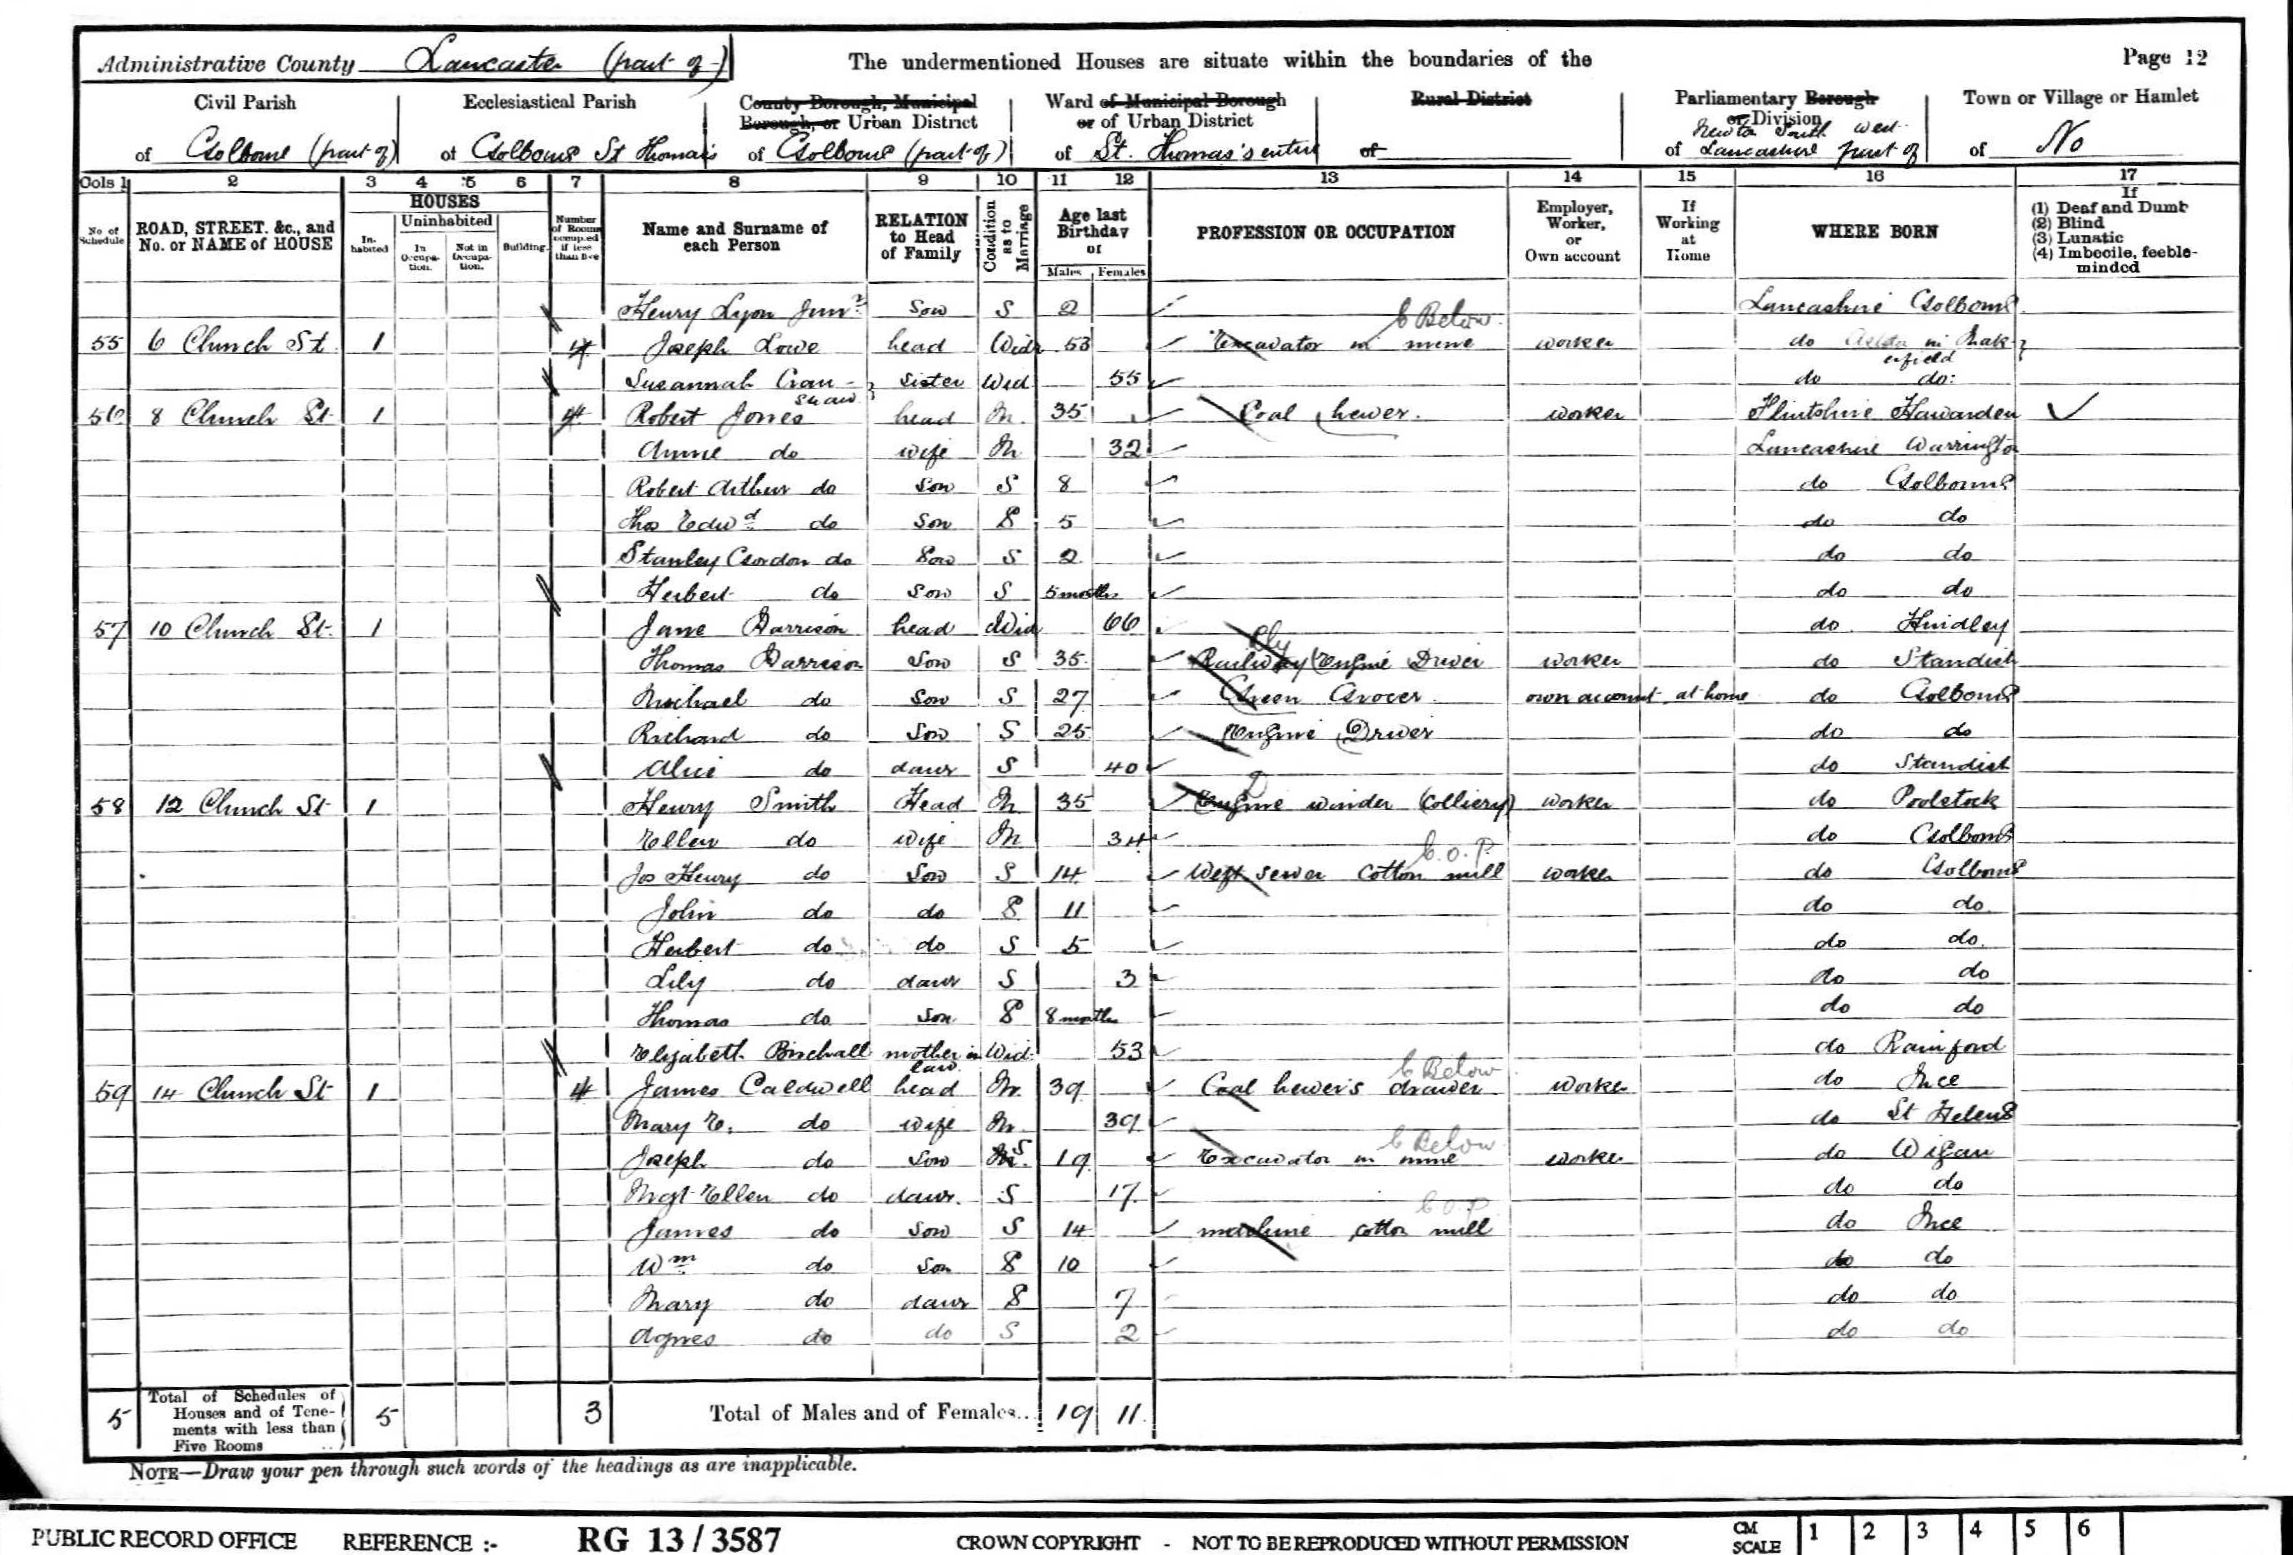 Administrative County Lancaster (part of) The undermentioned Houses are situate within the boundaries of the Page 12
Civil Parish Ecclesiastical Parish County Borough, Municipal Borough, or Urban District Ward of Municipal Borough or of Urban District Rural District Parliamentary Borough or Division Town or Village or Hamlet
of Golborne (part of) of Golborne St Thomas's of Golborne (part of) of St. Thomas's entire of of Newton South West Lancashire part of of No
Cols 1 2 3 4 5 6 7 8 9 10 11 12 13 14 15 16 17
No of Schedule ROAD, STREET. &c., and No. or NAME of HOUSE HOUSES Inhabited Uninhabited In Occupation. Not in Occupation. Building Number of Rooms occupied if less than five Name and Surname of each Person RELATION to Head of Family Condition as to Marriage Age last Birthday of Males Females PROFESSION OR OCCUPATION Employer, Worker, or Own account If Working at Home WHERE BORN If (1) Deaf and Dumb (2) Blind (3) Lunatic (4) Imbecile, feeble-minded
Henry Lyon Junr son S 2 Lancashire Golborne
55 6 Church St 1 4 Joseph Lowe head Widr 53 Excavator in mine C Below worker do Ashton in Makerfield
Susannah Cranshaw sister Wid 55 do do
56 8 Church St 1 4 Robert Jones head M 35 Coal hewer worker Flintshire Hawarden
Annie do wife M 32 Lancashire Warrington
Robert Arthur do son S 8 do Golborne
Thos Edwd do son S 5 do do
Stanley Gordon do son S 2 do do
Herbert do son S 5 months do do
57 10 Church St. 1 Jane Harrison head Wid 66 do Hindley
Thomas Harrison son S 35 Railway Engine Driver worker do Standish
Michael do son S 27 Green Grocer own account at home do Golborne
Richard do son S 25 Engine Driver do do
Alice do daur S 40 do Standish
58 12 Church St 1 Henry Smith Head M 35 Engine winder (Colliery) worker do Poolstock
Ellen do wife M 34 do Golborne
Jos Henry do son S 14 Weft sewer Cotton mill C.O.P. worker do Golborne
John do do S 11 do do
Herbert do do S 5 do do
Lily do daur S 3 do do
Thomas do son S 8 months do do
Elizabeth Birchall mother in law Wid 53 do Rainford
59 14 Church St 1 4 James Caldwell head M 39 Coal hewer's drawer C Below worker do Ince
Mary E. do wife M 39 do St Helens
Joseph do son S 19 Excavator in mine C Below worker do Wigan
Mgt Ellen do daur. S 17 do do
James do son S 14 machine cotton mill C.O.P. do Ince
Wm do son S 10 do do
Mary do daur S 7 do do
Agnes do do S 2 do do
5 Total of Schedules of Houses and of Tenements with less than Five Rooms 5 3 Total of Males and of Females.. 19 11
NOTE—Draw your pen through such words of the headings as are inapplicable.
PUBLIC RECORD OFFICE REFERENCE :- RG 13 / 3587 CROWN COPYRIGHT - NOT TO BE REPRODUCED WITHOUT PERMISSION CM SCALE 1 2 3 4 5 6